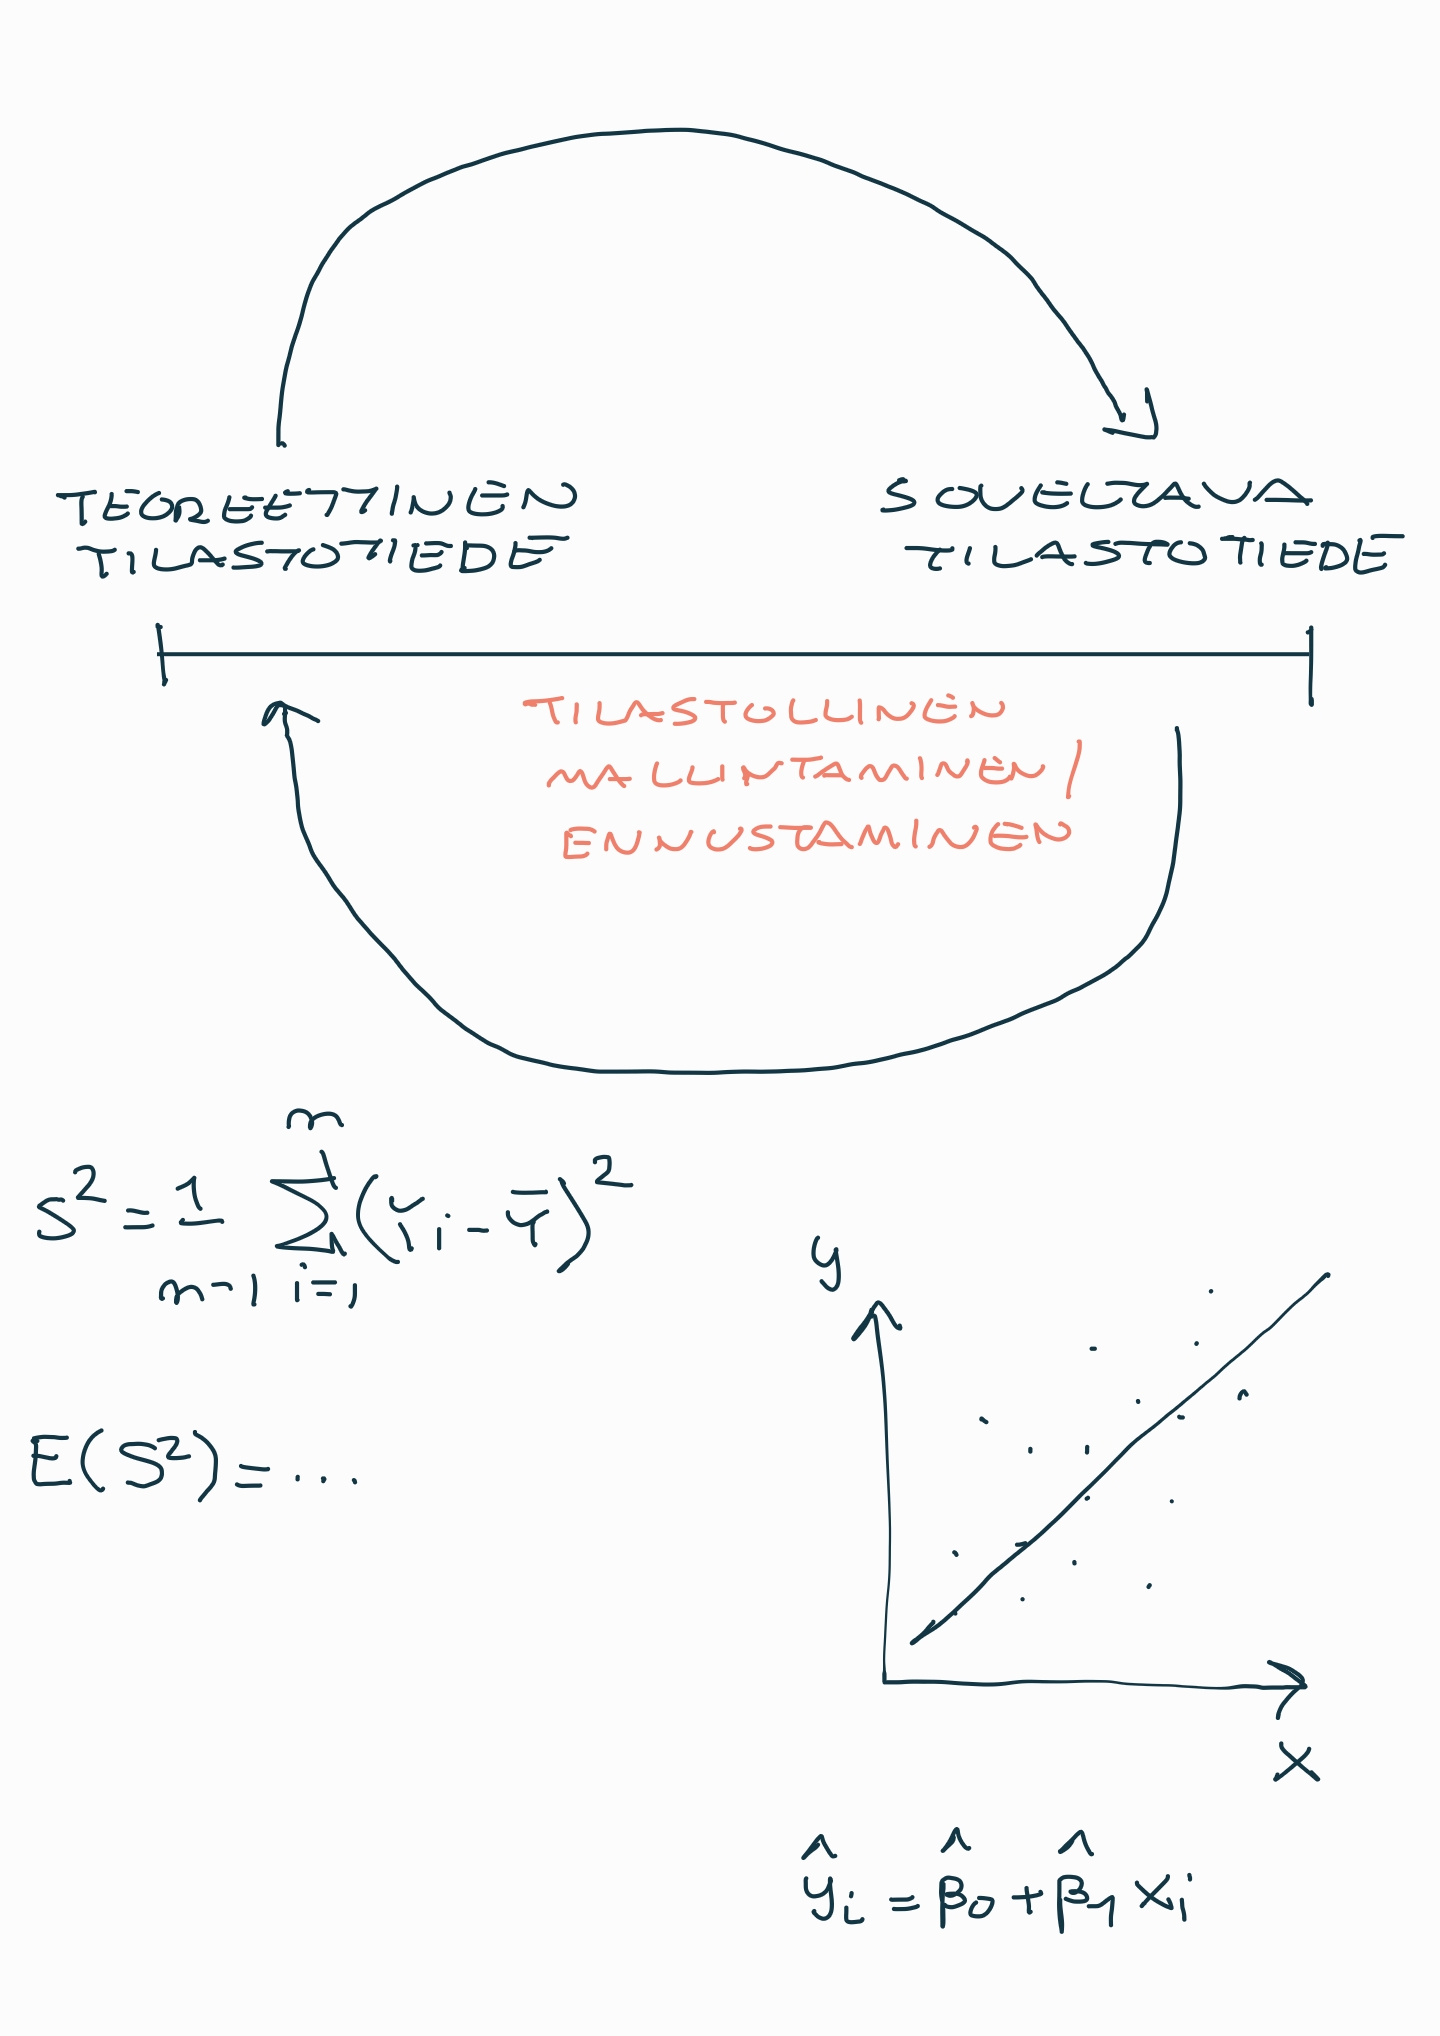 TEOREETTINEN
TILASTOTIEDE
SOVELTAVA
TILASTOTIEDE
TILASTOLLINEN
MALLINTAMINEN/
ENNUSTAMINEN
S² = 1/(n-1) Σ_{i=1}^{n} (Yᵢ - Ȳ)²
E(S²) = ...
y
x
ŷᵢ = β̂₀ + β̂₁ xᵢ